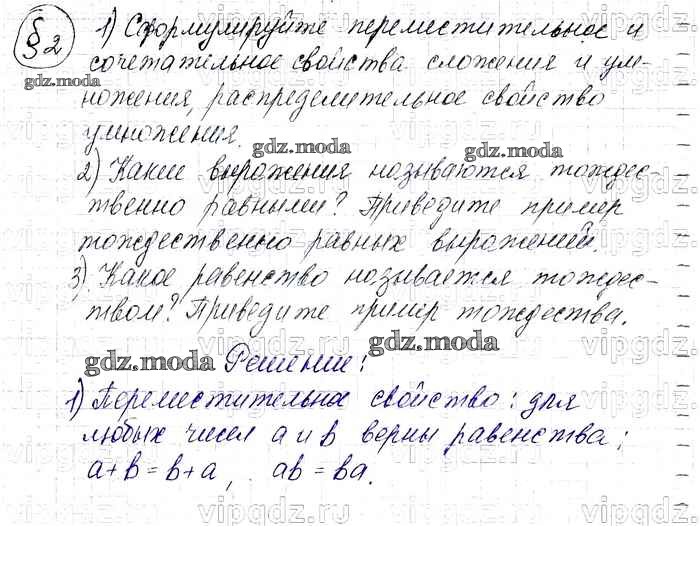 §2 1) Сформулируйте переместительное и
gdz.moda сочетательное свойства сложения и ум-
ножения, распределительное свойство
умножения.
gdz.moda gdz.moda
2) Какие выражения называются тождес-
твенно равными? Приведите пример
тождественно равных выражений.
3) Какое равенство называется тождес-
твом? Приведите пример тождества.
gdz.moda Решение: gdz.moda
1) Переместительное свойство: для
любых чисел a и b верны равенства:
a+b=b+a, ab=ba.
vipgdz.ru vipgdz.ru vipgdz.ru